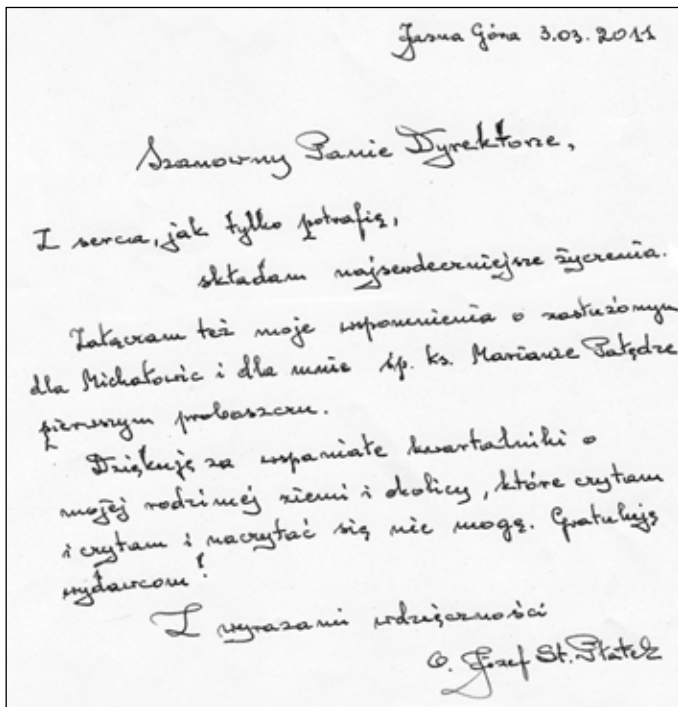 Jasna Góra 3.03.2011
Szanowny Panie Dyrektorze,
Z serca, jak tylko potrafię,
składam najserdeczniejsze życzenia.
Załączam też moje wspomnienia o zasłużonym
dla Michałowic i dla mnie śp. ks. Marianie Pałędze
pierwszym proboszczu.
Dziękuję za wspaniałe kwartalniki o
mojej rodzimej ziemi i okolicy, które czytam
i czytam i naczytać się nie mogę. Gratuluję
wydawcom!
Z wyrazami wdzięczności
O. Józef St. Płatek